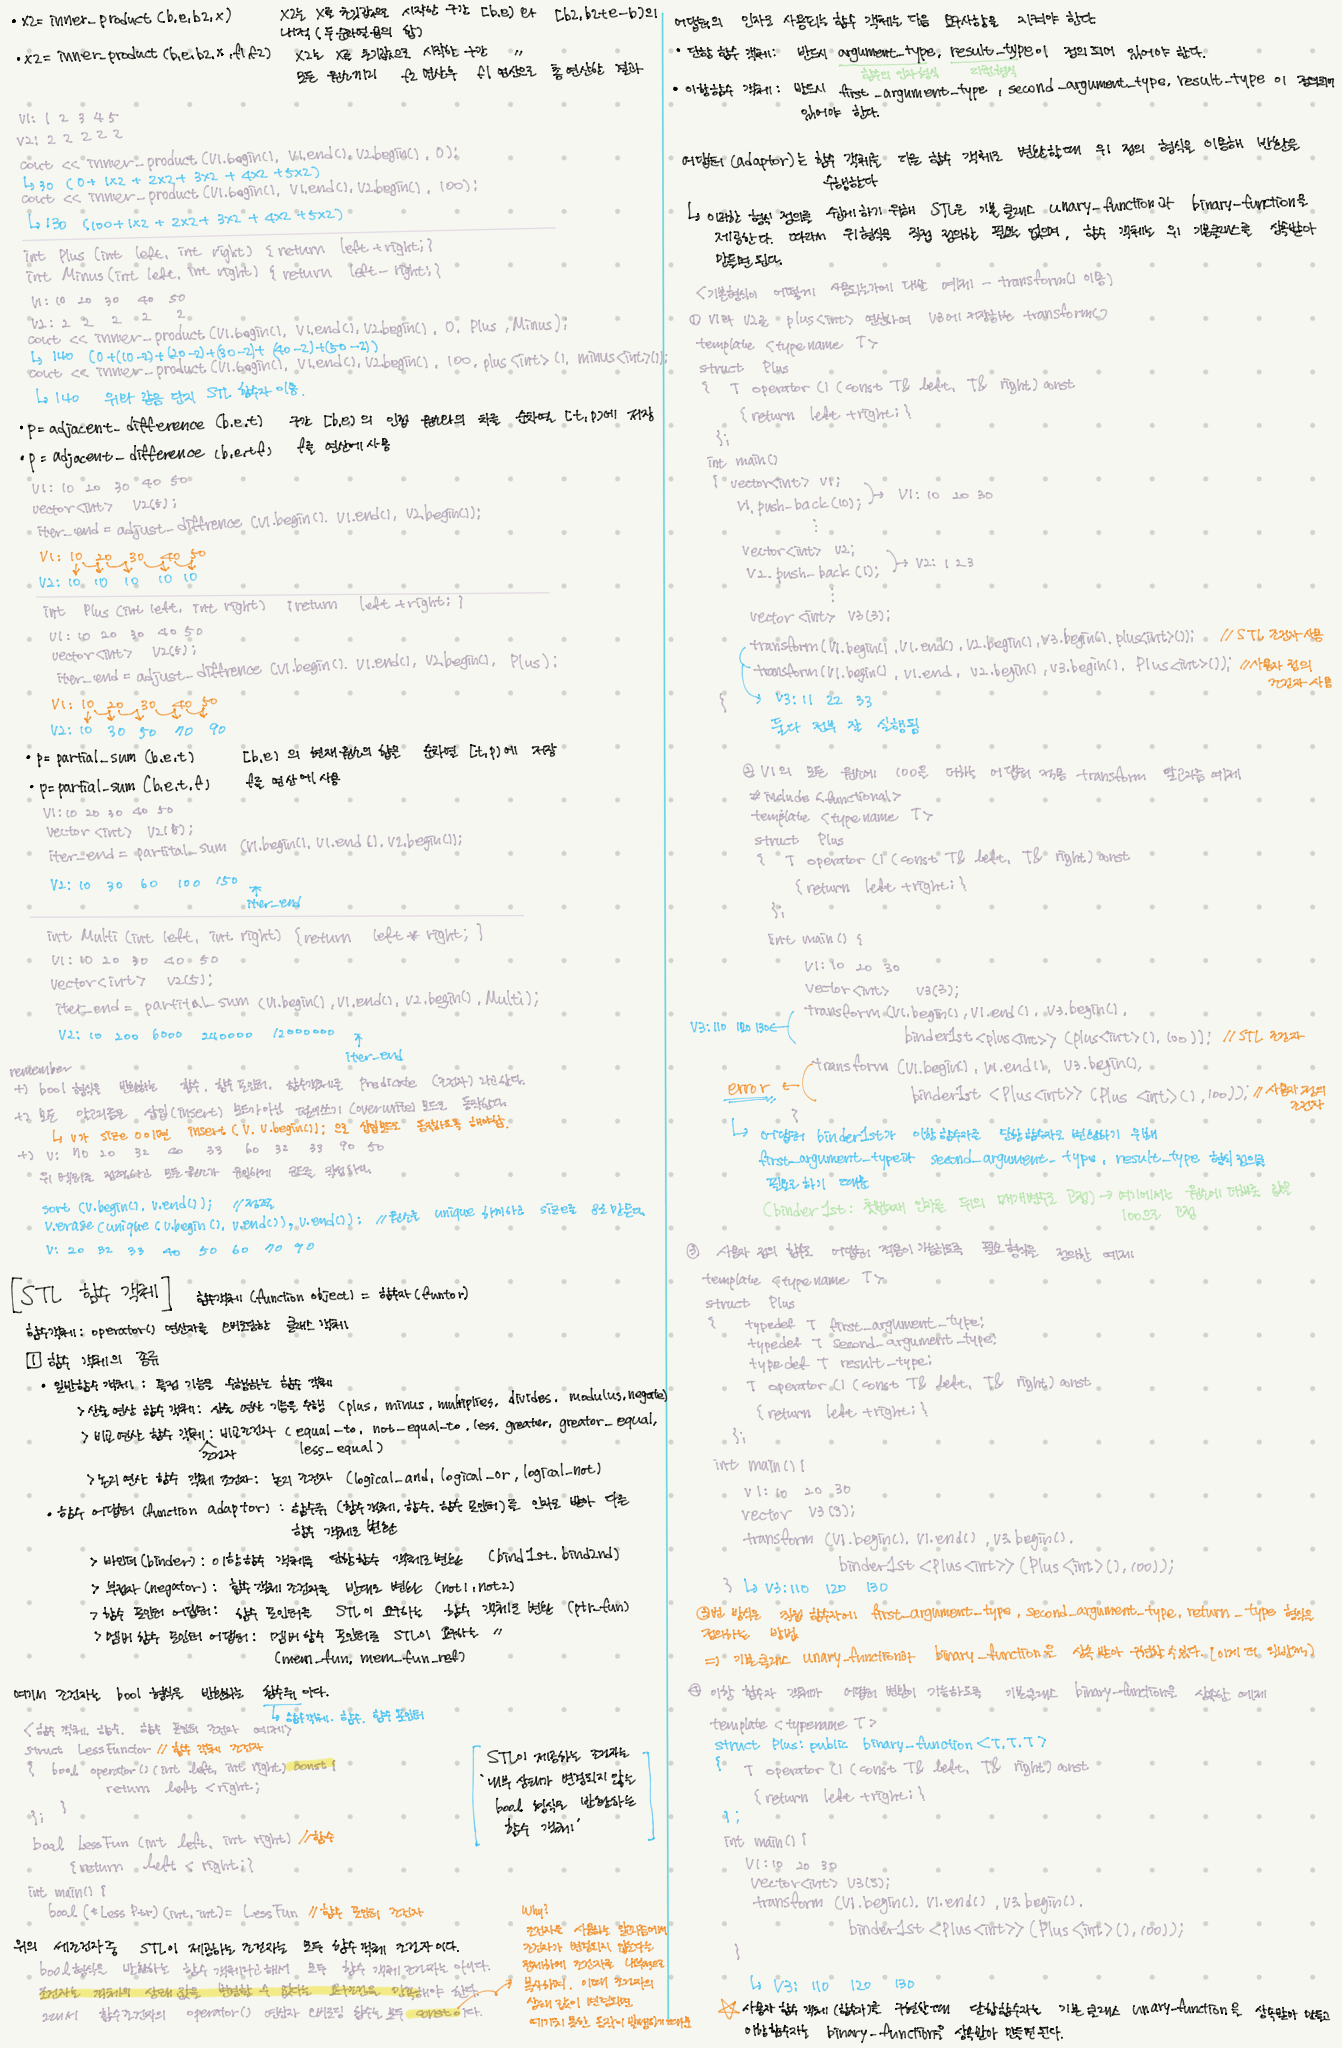 • x2= inner_product (b,e,b2,x) x2는 x를 초깃값으로 시작한 구간 [b,e) 와 [b2,b2+e-b)의
내적 (두 순차열 의 합)
• x2= inner_product (b,e,b2,x,f1,f2) x2는 x를 초깃값으로 시작한 구간 〃
모든 원소끼리 f2 연산후 f1 연산으로 총 연산한 결과
V1: 1 2 3 4 5
V2: 2 2 2 2 2
cout << inner_product (V1.begin(), V1.end(), V2.begin(), 0);
↳ 30 (0+ 1x2 + 2x2+ 3x2 + 4x2 +5x2)
cout << inner_product (V1.begin(), V1.end(), V2.begin(), 100);
↳ 130 (100+1x2 + 2x2+ 3x2 + 4x2 +5x2)
int Plus (int left, int right) { return left+right; }
int Minus (int left, int right) { return left-right; }
V1: 10 20 30 40 50
V2: 2 2 2 2 2
cout << inner_product (V1.begin(), V1.end(), V2.begin(), 0, Plus, Minus);
↳ 140 (0+(10-2)+(20-2)+(30-2)+(40-2)+(50-2))
cout << inner_product (V1.begin(), V1.end(), V2.begin(), 100, plus<int>(), minus<int>());
↳ 140 위와 같음 단지 STL 함수자 이용.
• p= adjacent_difference (b,e,t) 구간 [b,e) 의 인접 원소와의 차를 순차열 [t,p)에 저장
• p = adjacent_difference (b,e,t,f) f를 연산에 사용
V1: 10 20 30 40 50
vector<int> V2(5);
iter_end = adjust_diffrence (V1.begin(), V1.end(), V2.begin());
V1: 10 20 30 40 50
V2: 10 10 10 10 10
int Plus (int left, int right) {return left+right; }
V1: 10 20 30 40 50
vector<int> V2(5);
iter_end = adjust_diffrence (V1.begin(), V1.end(), V2.begin(), Plus);
V1: 10 20 30 40 50
V2: 10 30 50 70 90
• p= partial_sum (b,e,t) [b,e) 의 현재 원소의 합은 순차열 [t,p) 에 저장
• p= partial_sum (b,e,t,f) f를 연산에 사용
V1: 10 20 30 40 50
vector<int> V2(5);
iter_end = partital_sum (V1.begin(), V1.end(), V2.begin());
V2: 10 30 60 100 150
iter_end
int Multi (int left, int right) {return left * right; }
V1: 10 20 30 40 50
vector<int> V2(5);
iter_end = partital_sum (V1.begin(), V1.end(), V2.begin(), Multi);
V2: 10 200 6000 240000 12000000
iter_end
remember
+) bool 형식을 반환하는 함수, 함수 포인터, 함수객체를 predicate (조건자) 라고한다.
+) 모든 알고리즘은 삽입(insert) 모드가아닌 덮어쓰기 (overwrite) 모드로 동작한다.
↳ V가 size 0이면 insert (V, V.begin()); 으로 삽입모드로 동작하도록 해야함.
+) V: 70 20 32 40 33 60 32 33 90 50
위 벡터를 정렬하고 모든 원소가 유일하게 코드를 작성하라.
sort (V.begin(), V.end()); //정렬
V.erase(unique (V.begin(), V.end()), V.end()); //원소를 unique 하게하고 size를 8로 만든다.
V: 20 32 33 40 50 60 70 90
[STL 함수 객체] 함수객체 (function object) = 함수자 (funtor)
함수객체: operator() 연산자를 오버로딩한 클래스 객체
1 함수 객체의 종류
• 일반함수 객체: 특정 기능을 수행하는 함수 객체
> 산술 연산 함수 객체: 산술 연산 기능을 수행 (plus, minus, multiplies, divides, modulus, negate)
> 비교 연산 함수 객체 조건자: 비교조건자 (equal_to, not_equal_to, less, greater, greator_equal,
less_equal)
> 논리 연산 함수 객체 조건자: 논리 조건자 (logical_and, logical_or, logical_not)
• 함수 어댑터 (function adaptor) : 함수류 (함수객체, 함수, 함수 포인터)를 인자로 받아 다른
함수 객체로 변환
> 바인더(binder): 이항함수 객체를 단항함수 객체로 변환 (bind1st, bind2nd)
> 부정자(negator): 함수 객체 조건자를 반대로 변환 (not1, not2)
> 함수 포인터 어댑터: 함수 포인터를 STL이 요구하는 함수 객체로 변환 (ptr_fun)
> 멤버 함수 포인터 어댑터: 멤버 함수 포인터를 STL이 요구하는 〃
(mem_fun, mem_fun_ref)
여기서 조건자는 bool 형식을 반환하는 함수류 이다.
↳ 함수객체, 함수, 함수 포인터
<함수 객체, 함수, 함수 포인터 조건자 예제>
struct LessFunctor // 함수 객체 조건자
{ bool operator() (int left, int right) const {
return left < right;
}
};
bool LessFun (int left, int right) //함수
{return left < right;}
int main() {
bool (*LessPtr) (int, int) = LessFun // 함수 포인터 조건자
[STL이 제공하는 조건자는
'내부 상태가 변경되지 않는
bool 형식으로 반환하는
함수 객체']
위의 세조건자중 STL이 제공하는 조건자는 모두 함수 객체 조건자 이다.
bool형식을 반환하는 함수 객체라고해서 모두 함수 객체 조건자는 아니다.
조건자는 객체의 상태 값을 변경할 수 없다는 요구조건을 만족해야 한다.
그래서 함수조건자의 operator() 연산자 오버로딩 함수는 모두 const이다.
Why?
조건자를 사용하는 알고리즘에서
조건자가 변경되지 않는다는
전제하에 조건자를 내부적으로
복사하며, 이때 조건자의
상태 값이 변경되면
예기치 못한 동작이 발생하기 때문
어댑터의 인자로 사용되는 함수 객체는 다음 요구사항을 지켜야 한다
• 단항 함수 객체: 반드시 argument_type, result_type이 정의 되어 있어야 한다.
함수의 인자형식 리턴형식
• 이항함수 객체: 반드시 first_argument_type, second_argument_type, result_type 이 정의되어
있어야 한다.
어댑터 (adaptor)는 함수 객체를 다른 함수 객체로 변환할때 위 정의 형식을 이용해 변환을
수행한다
↳ 이러한 형식 정의를 쉽게 하기 위해 STL은 기본 클래스 unary_function과 binary_function을
제공한다. 따라서 위 형식을 직접 정의할 필요는 없으며, 함수 객체는 위 기본클래스를 상속받아
만들면 된다.
<기본형식이 어떻게 사용되는가에 대한 예제 - transform() 이용>
① V1과 V2를 plus<int> 연산하여 V3에 저장하는 transform()
template <typename T>
struct Plus
{ T operator () (const T& left, T& right) const
{ return left+right; }
};
int main()
{ vector<int> V1;
V1.push_back(10); → V1: 10 20 30
⋮
vector<int> V2;
V2.push_back(1); → V2: 1 2 3
⋮
vector<int> V3(3);
transform(V1.begin(), V1.end(), V2.begin(), V3.begin(), plus<int>()); // STL 조건자 사용
transform(V1.begin(), V1.end, V2.begin(), V3.begin(), Plus<int>()); //사용자 정의
조건자 사용
{ V3: 11 22 33
둘다 전부 잘 실행됨
② V1의 모든 원소에 100을 더하는 어댑터 적용 transform 알고리즘 예제
#include <functional>
template <typename T>
struct Plus
{ T operator () (const T& left, T& right) const
{ return left+right; }
};
int main() {
V1: 10 20 30
vector<int> V3(3);
transform (V1.begin(), V1.end(), V3.begin(),
V3: 110 120 130 ← binder1st<plus<int>> (plus<int>(), 100)); // STL 조건자
transform (V1.begin(), V1.end(), V3.begin(),
error ← binder1st <Plus<int>> (Plus<int>(), 100)); // 사용자 정의
조건자
}
↳ 어댑터 binder1st가 이항 함수자를 단항 함수자로 변환하기 위해
first_argument_type과 second_argument_type, result_type 형식 정의를
필요로 하기 때문
(binder1st: 첫번째 인자를 뒤의 매개변수로 고정) → 여기에서는 원소에 더해줄 값은
100으로 고정
③ 사용자 정의 함수도 어댑터 적용이 가능하도록 필요 형식을 정의한 예제
template <typename T>
struct Plus
{ typedef T first_argument_type;
typedef T second_argument_type;
typedef T result_type;
T operator () (const T& left, T& right) const
{ return left+right; }
};
int main() {
V1: 10 20 30
vector V3(3);
transform (V1.begin(), V1.end(), V3.begin(),
binder1st <Plus<int>> (Plus<int>(), 100));
} ↳ V3: 110 120 130
③번 방식은 직접 함수자에 first_argument_type, second_argument_type, return_type 형식을
정의하는 방법
=> 기본 클래스 unary_function과 binary_function을 상속 받아 구현할 수 있다. (이게 더 일반적)
④ 이항 함수자 객체가 어댑터 변환이 가능하도록 기본클래스 binary_function을 상속한 예제
template <typename T>
struct Plus: public binary_function <T,T,T>
{ T operator () (const T& left, T& right) const
{ return left+right; }
};
int main() {
V1: 10 20 30
vector<int> V3(3);
transform (V1.begin(), V1.end(), V3.begin(),
binder1st <Plus<int>> (Plus<int>(), 100));
}
↳ V3: 110 120 130
☆ 사용자 함수 객체 (함수자)를 구현할때 단항함수자는 기본 클래스 unary_function을 상속받아 만들고
이항함수자는 binary_function을 상속받아 만들면 된다.